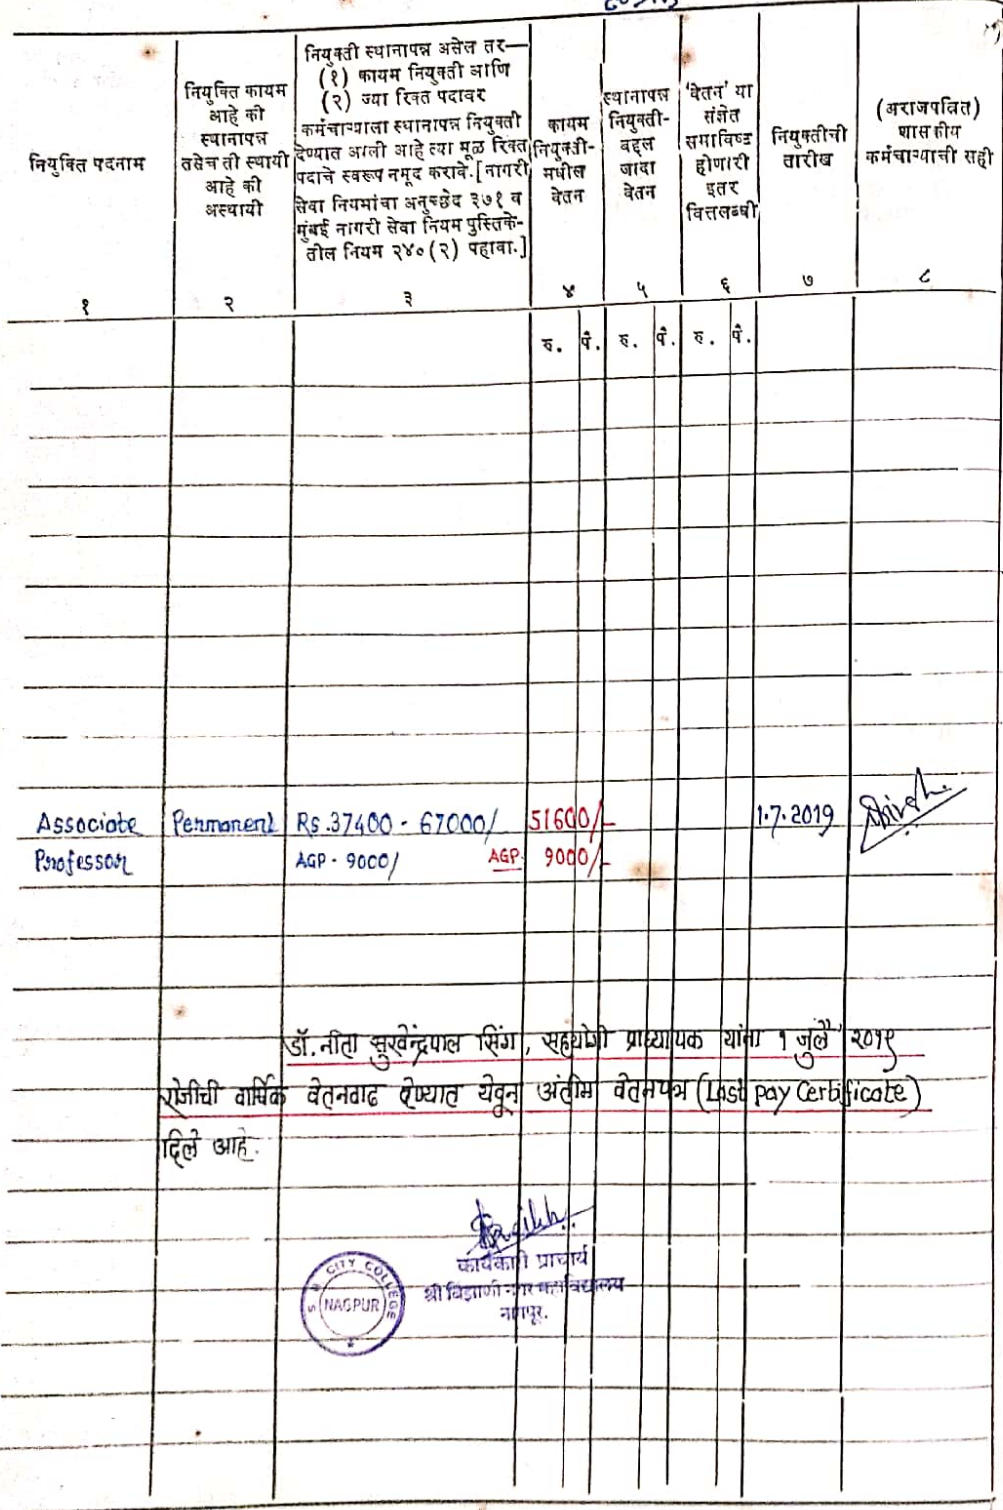 नियुक्ति पदनाम
नियुक्ति कायम
आहे की
स्थानापन्न
तसेच ती स्थायी
आहे की
अस्थायी
नियुक्ती स्थानापन्न असेल तर—
(१) कायम नियुक्ती आणि
(२) ज्या रिक्त पदावर
कर्मचाऱ्याला स्थानापन्न नियुक्ती
देण्यात आली आहे त्या मूळ रिक्त
पदाचे स्वरूप नमूद करावे. [नागरी
सेवा नियमांचा अनुच्छेद ३७१ व
मुंबई नागरी सेवा नियम पुस्तिके-
तील नियम २४० (२) पहावा.]
कायम
नियुक्ती-
मधील
वेतन
स्थानापन्न
नियुक्ती-
बद्दल
जादा
वेतन
'वेतन' या
संज्ञेत
समाविष्ट
होणारी
इतर
वित्तलब्धी
नियुक्तीची
तारीख
(अराजपत्रित)
शासकीय
कर्मचाऱ्याची सही
१ २ ३ ४ ५ ६ ७ ८
रु. पै. रु. पै. रु. पै.
Associate Permanent Rs.37400 - 67000/ 51600/- 1.7.2019
Professor AGP - 9000/ AGP 9000/-
डॉ. नीता सुखेंद्रपाल सिंग, सहयोगी प्राध्यापक यांना १ जुलै २०१९
रोजीची वार्षिक वेतनवाढ देण्यात येवून अंतीम वेतनपत्र (Last pay Certificate)
दिले आहे.
कार्यकारी प्राचार्य
श्री बिंझाणी नगर महाविद्यालय
नागपूर.
S B CITY COLLEGE
NAGPUR